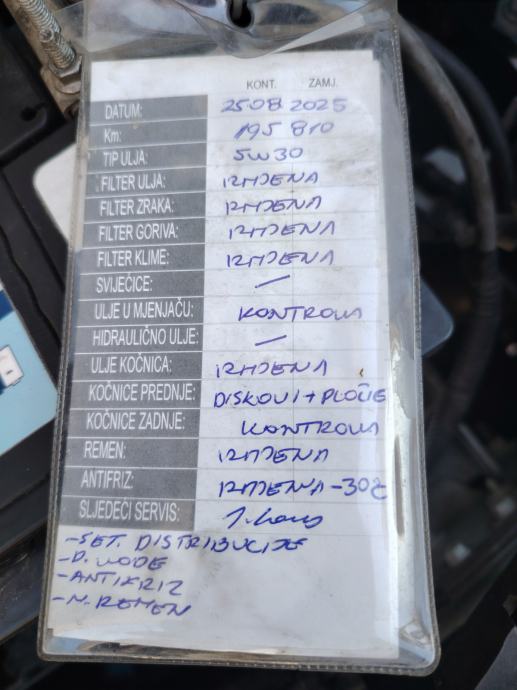 KONT. ZAMJ.
DATUM: 25 08 2025
Km: 195 810
TIP ULJA: 5W30
FILTER ULJA: IZMJENA
FILTER ZRAKA: IZMJENA
FILTER GORIVA: IZMJENA
FILTER KLIME: IZMJENA
SVIJEĆICE: —
ULJE U MJENJAČU: KONTROLA
HIDRAULIČNO ULJE: —
ULJE KOČNICA: IZMJENA
KOČNICE PREDNJE: DISKOVI + PLOČE
KOČNICE ZADNJE: KONTROLA
REMEN: IZMJENA
ANTIFRIZ: IZMJENA -30
SLJEDEĆI SERVIS:
-SET. DISTRIBUCIJE
-P. VODE
-ANTIKRIZ
-N. REMEN